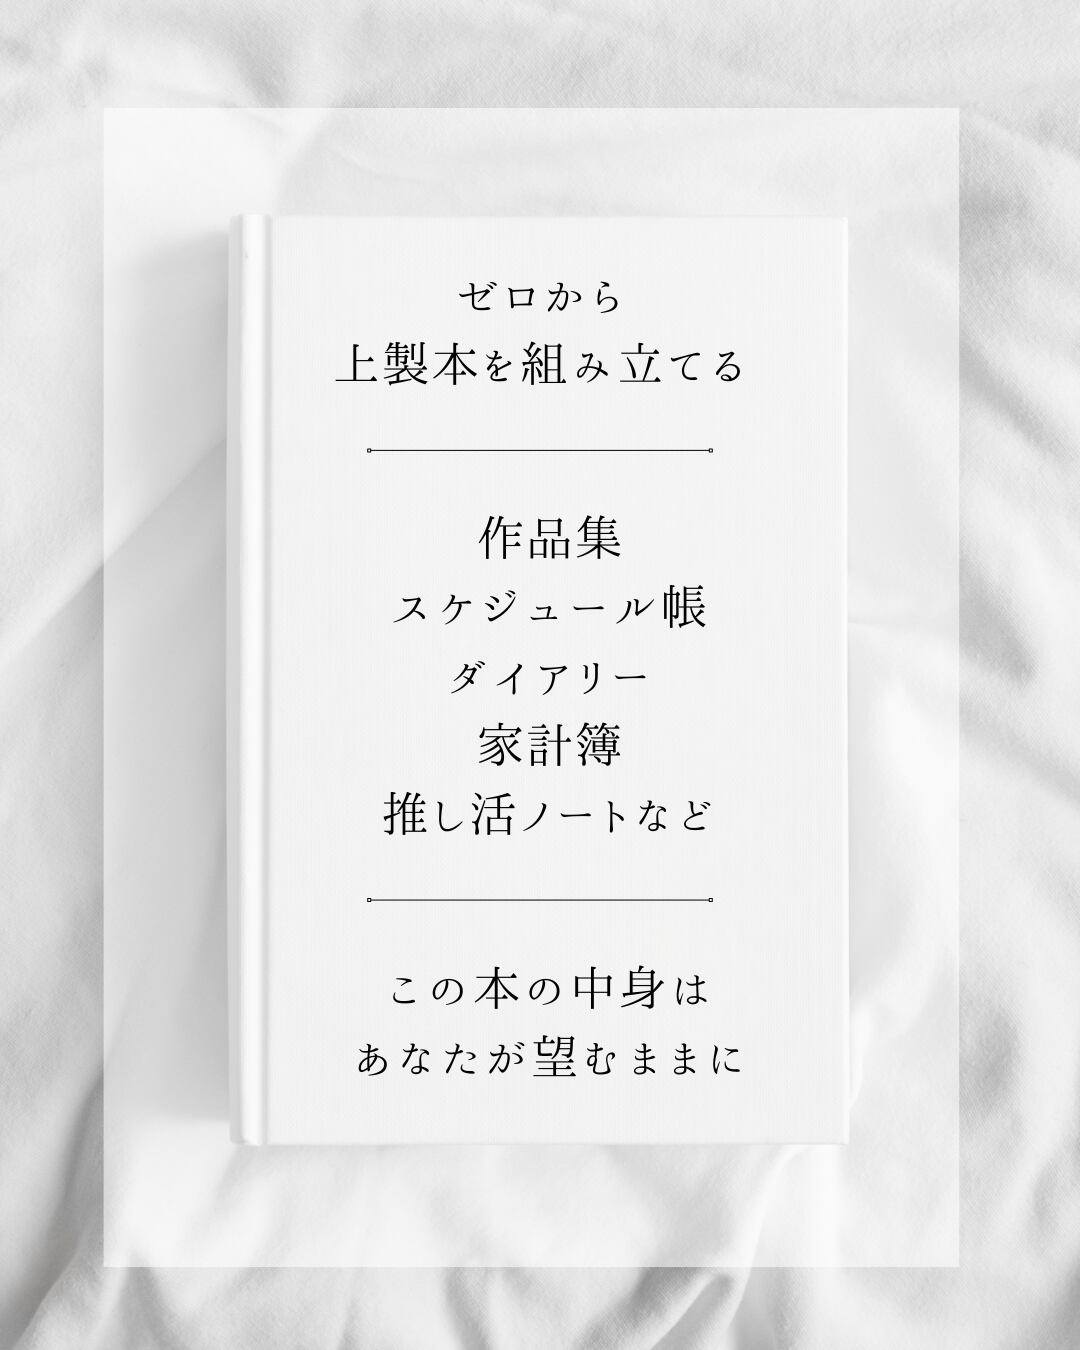 ゼロから
上製本を組み立てる
作品集
スケジュール帳
ダイアリー
家計簿
推し活ノートなど
この本の中身は
あなたが望むままに